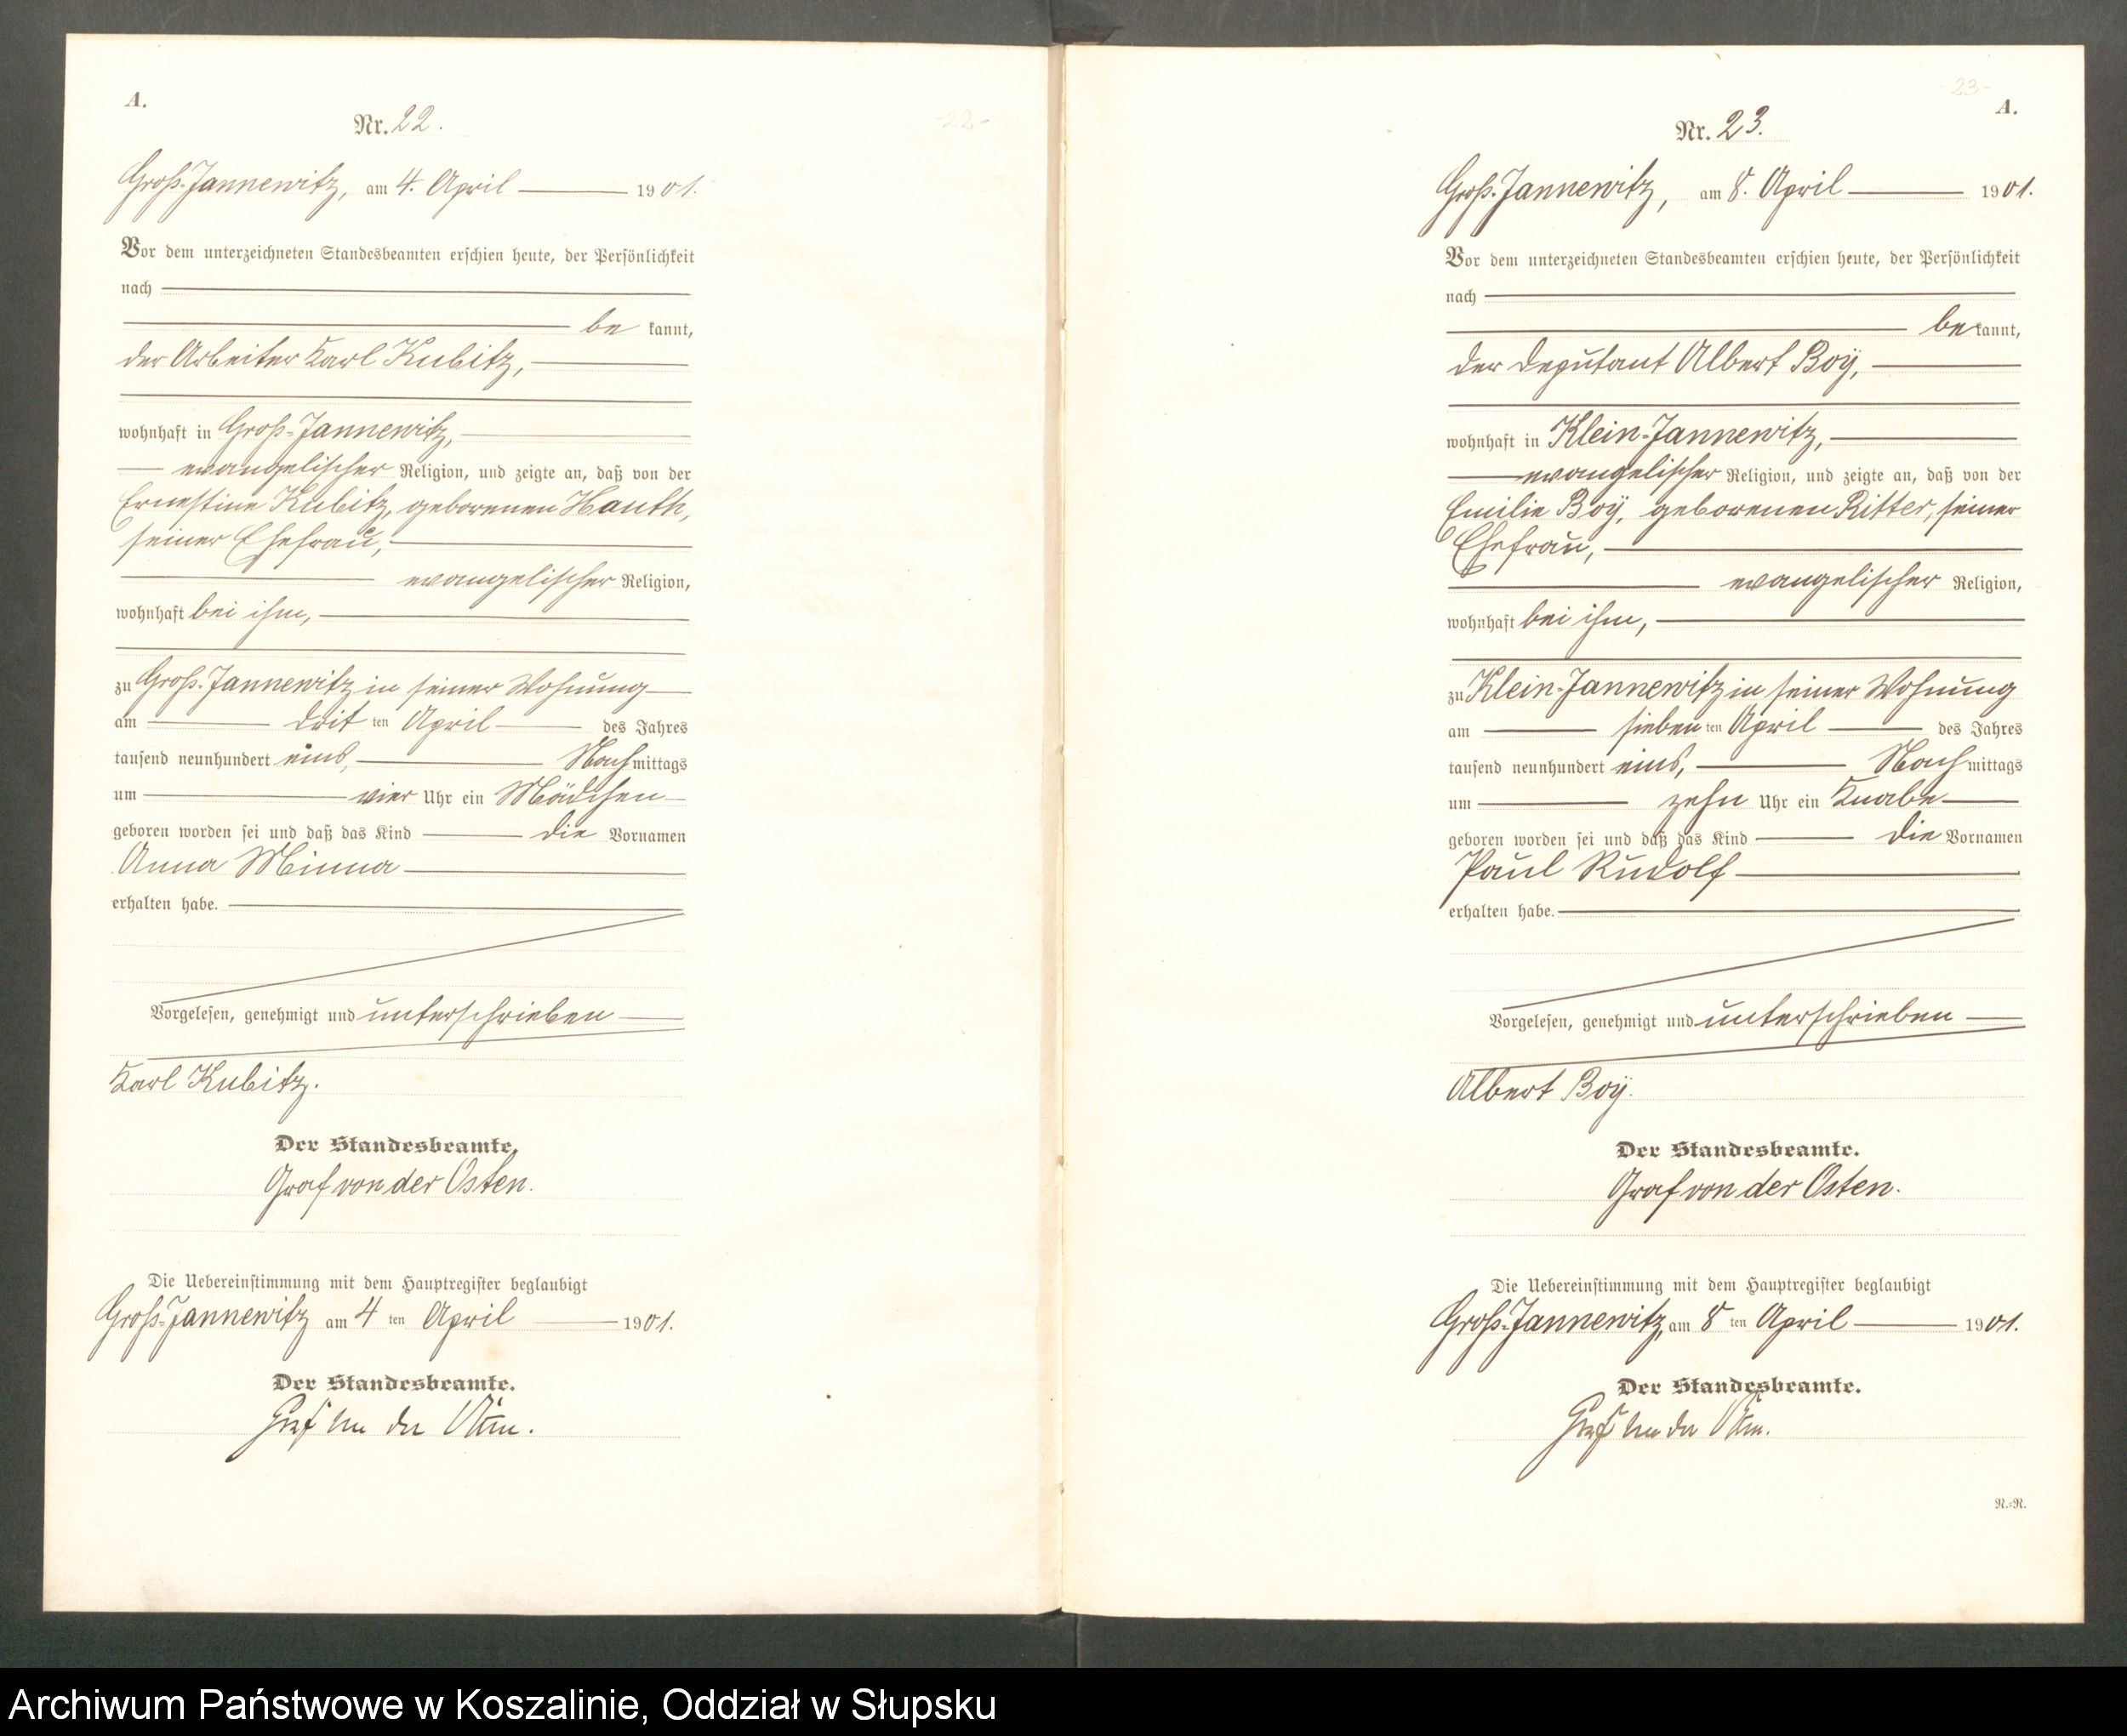 A.
Nr. 22.
-22-
Groß-Jannewitz, am 4. April 1901.
Vor dem unterzeichneten Standesbeamten erschien heute, der Persönlichkeit
nach
be kannt,
der Arbeiter Karl Kubitz,
wohnhaft in Groß-Jannewitz,
evangelischer Religion, und zeigte an, daß von der
Ernestine Kubitz, geborenen Hauth,
seiner Ehefrau,
evangelischer Religion,
wohnhaft bei ihm,
zu Groß-Jannewitz in seiner Wohnung
am drit ten April des Jahres
tausend neunhundert eins, Nachmittags
um vier Uhr ein Mädchen
geboren worden sei und daß das Kind die Vornamen
Anna Minna
erhalten habe.
Vorgelesen, genehmigt und unterschrieben
Karl Kubitz.
Der Standesbeamte.
Graf von der Osten.
Die Uebereinstimmung mit dem Hauptregister beglaubigt
Groß-Jannewitz am 4 ten April 1901.
Der Standesbeamte.
Graf von der Osten.
23-
A.
Nr. 23.
Groß-Jannewitz, am 8. April 1901.
Vor dem unterzeichneten Standesbeamten erschien heute, der Persönlichkeit
nach
be kannt,
der Deputant Albert Boÿ,
wohnhaft in Klein-Jannewitz,
evangelischer Religion, und zeigte an, daß von der
Emilie Boÿ, geborenen Ritter, seiner
Ehefrau,
evangelischer Religion,
wohnhaft bei ihm,
zu Klein-Jannewitz in seiner Wohnung
am sieben ten April des Jahres
tausend neunhundert eins, Nachmittags
um zehn Uhr ein Knabe
geboren worden sei und daß das Kind die Vornamen
Paul Rudolf
erhalten habe.
Vorgelesen, genehmigt und unterschrieben
Albert Boÿ.
Der Standesbeamte.
Graf von der Osten.
Die Uebereinstimmung mit dem Hauptregister beglaubigt
Groß-Jannewitz, am 8 ten April 1901.
Der Standesbeamte.
Graf von der Osten.
N.=N.
Archiwum Państwowe w Koszalinie, Oddział w Słupsku